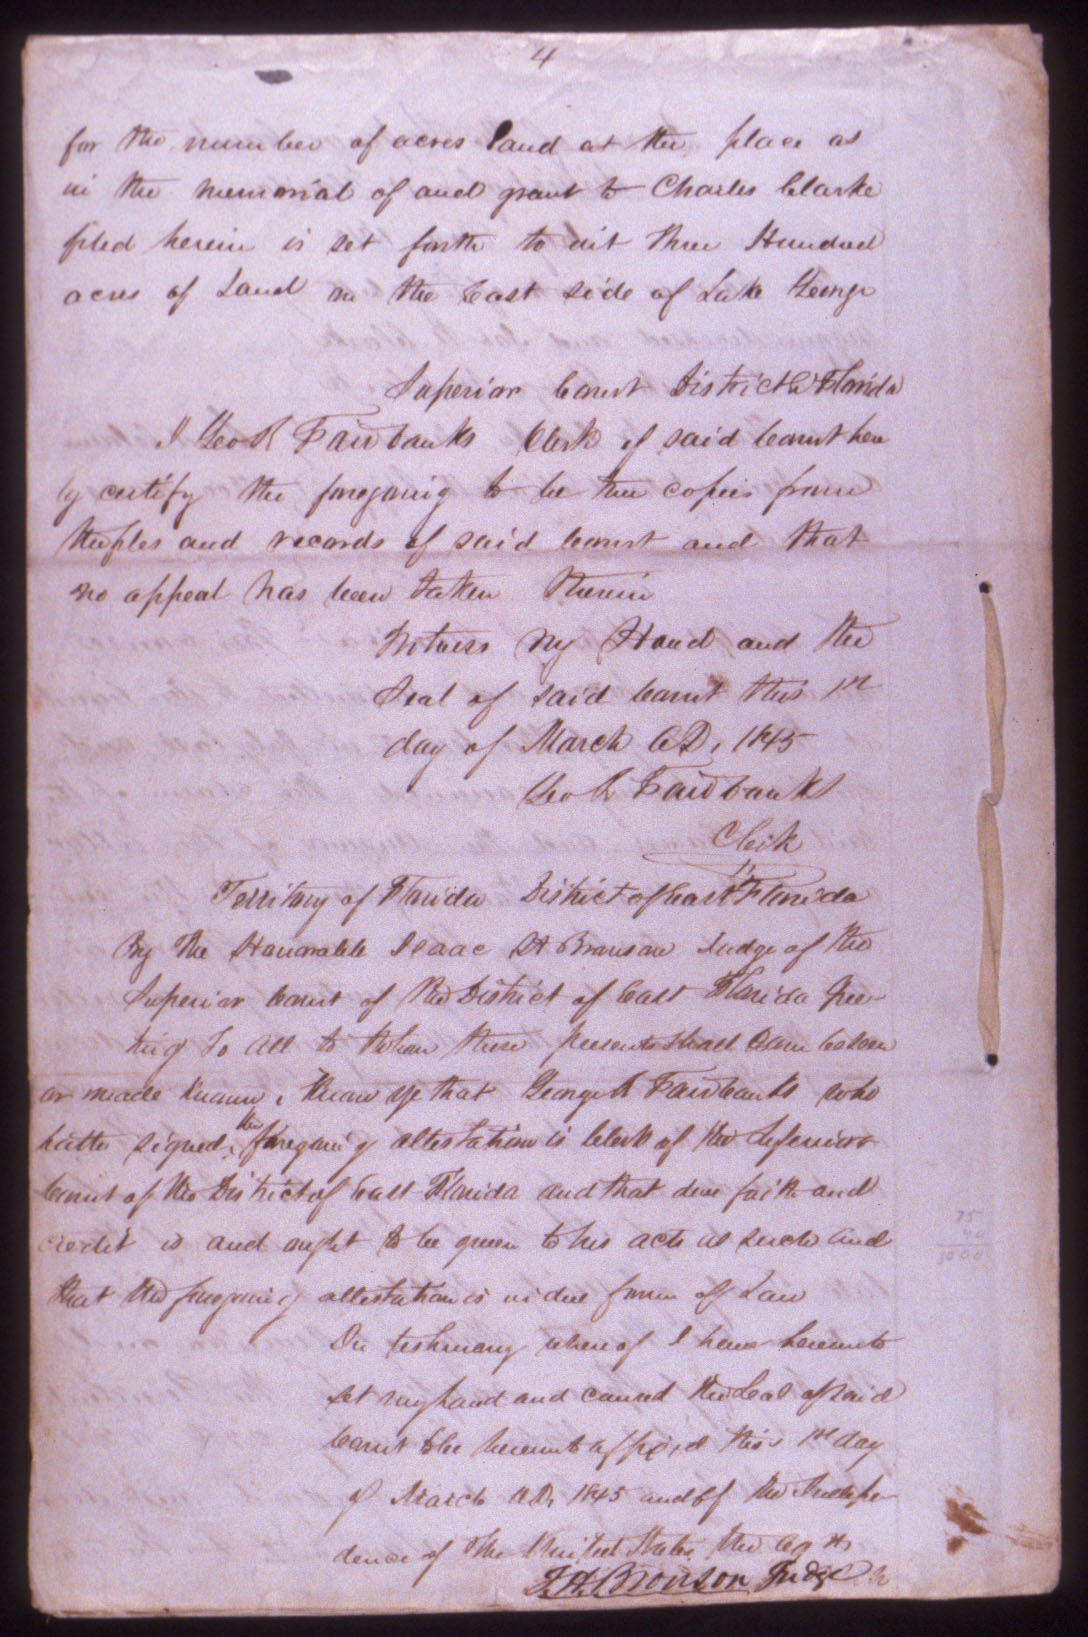 4
for the number of acres land at the place as
in the memorial of and grant to Charles Clarke
filed herein is set forth to wit three Hundred
acres of Land on the East side of Lake George
Superior Court District E Florida
I Geo R Fairbanks Clerk of said Court here
by certify the foregoing to be true copies from
the files and records of said Court and that
no appeal has been taken therein
Witness my Hand and the
Seal of said Court this 1st
day of March A.D. 1845
Geo R Fairbanks
Clerk
Territory of Florida District of East Florida
By the Honorable Isaac H Bronson Judge of the
Superior Court of the District of East Florida Gree
ting To all to whom these presents shall Come
or made known, Know ye that George R Fairbanks who
hath signed the foregoing attestation is Clerk of the Superior
Court of the District of East Florida and that due faith and
credit is and ought to be given to his acts as such and
that the foregoing attestation is in due form of Law
In testimony whereof I have hereunto
set my hand and caused the Seal of said
Court to be hereunto affixed this 1st day
of March A.D. 1845 and of the Indepen
dence of the United States the
I. H. Bronson Judge
75
3000